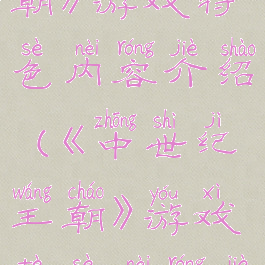 朝》游戏特
sè nèi róng jiè shào
色内容介绍
zhōng shì jì
(《中世纪
wáng cháo yóu xì
王朝》游戏
tè sè nèi róng jiè